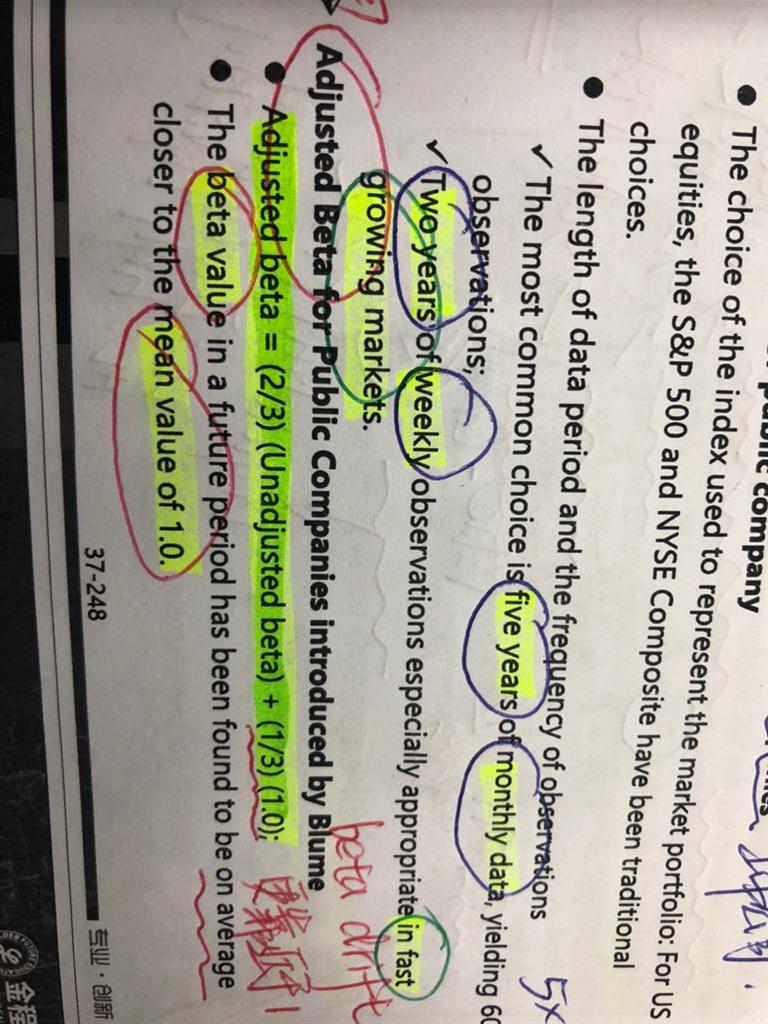 public company
• The choice of the index used to represent the market portfolio: For US
equities, the S&P 500 and NYSE Composite have been traditional
choices.
• The length of data period and the frequency of observations
✓ The most common choice is five years of monthly data, yielding 60
observations;
5x
✓ Two years of weekly observations especially appropriate in fast
growing markets.
Adjusted Beta for Public Companies introduced by Blume
beta drift
• Adjusted beta = (2/3) (Unadjusted beta) + (1/3) (1.0);
• The beta value in a future period has been found to be on average
closer to the mean value of 1.0.
37-248
专业·创新
金程